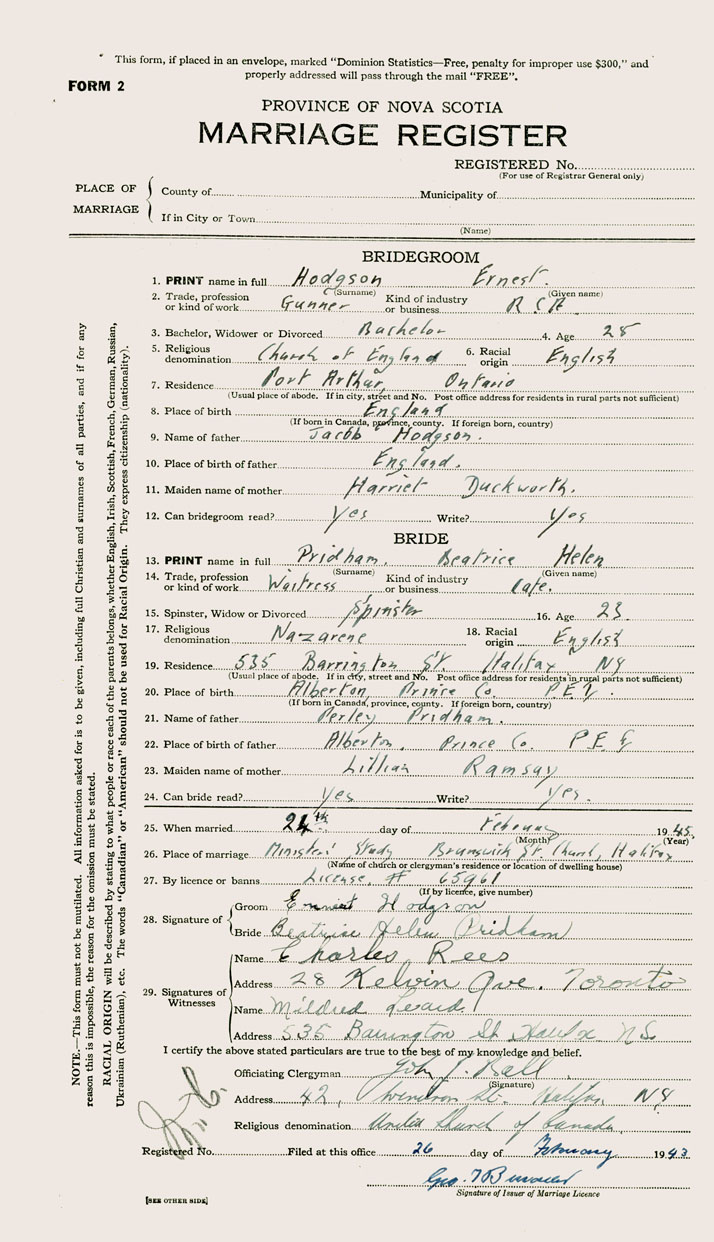 This form, if placed in an envelope, marked "Dominion Statistics—Free, penalty for improper use $300," and
properly addressed will pass through the mail "FREE".
FORM 2
PROVINCE OF NOVA SCOTIA
MARRIAGE REGISTER
REGISTERED No.
(For use of Registrar General only)
PLACE OF MARRIAGE
County of Municipality of
If in City or Town
(Name)
BRIDEGROOM
1. PRINT name in full Hodgson Ernest.
(Surname) (Given name)
2. Trade, profession or kind of work Gunner Kind of industry or business R C A
3. Bachelor, Widower or Divorced Bachelor 4. Age 28
5. Religious denomination Church of England 6. Racial origin English
7. Residence Port Arthur, Ontario
(Usual place of abode. If in city, street and No. Post office address for residents in rural parts not sufficient)
8. Place of birth England
(If born in Canada, province, county. If foreign born, country)
9. Name of father Jacob Hodgson.
10. Place of birth of father England.
11. Maiden name of mother Harriet Duckworth.
12. Can bridegroom read? Yes Write? Yes
BRIDE
13. PRINT name in full Pridham. Beatrice Helen
(Surname) (Given name)
14. Trade, profession or kind of work Waitress Kind of industry or business Cafe.
15. Spinster, Widow or Divorced Spinster 16. Age 23
17. Religious denomination Nazarene 18. Racial origin English
19. Residence 535 Barrington St. Halifax NS
(Usual place of abode. If in city, street and No. Post office address for residents in rural parts not sufficient)
20. Place of birth Alberton, Prince Co. P E I.
(If born in Canada, province, county. If foreign born, country)
21. Name of father Perley Pridham.
22. Place of birth of father Alberton, Prince Co. P E I
23. Maiden name of mother Lillian Ramsay
24. Can bride read? Yes Write? Yes.
25. When married 24th day of February 19
(Month) (Year)
26. Place of marriage Ministers' Study Brunswick St. Church, Halifax
(Name of church or clergyman's residence or location of dwelling house)
27. By licence or banns License, # 65961
(If by licence, give number)
28. Signature of
Groom Ernest Hodgson
Bride Beatrice Helen Pridham
29. Signatures of Witnesses
Name Charles Rees
Address 28 Kelvin Ave. Toronto
Name Mildred Leard
Address 535 Barrington St Halifax N.S.
I certify the above stated particulars are true to the best of my knowledge and belief.
Officiating Clergyman John J. Ball
(Signature)
Address 42, Windsor St. Halifax NS
Religious denomination United Church of Canada.
Registered No. Filed at this office 26 day of February 1943
Geo.
Signature of Issuer of Marriage Licence
[SEE OTHER SIDE]
NOTE.—This form must not be mutilated. All information asked for is to be given, including full Christian and surnames of all parties, and if for any
reason this is impossible, the reason for the omission must be stated.
RACIAL ORIGIN will be described by stating to what people or race each of the parents belongs, whether English, Irish, Scottish, French, German, Russian,
Ukrainian (Ruthenian), etc. The words "Canadian" or "American" should not be used for Racial Origin. They express citizenship (nationality).